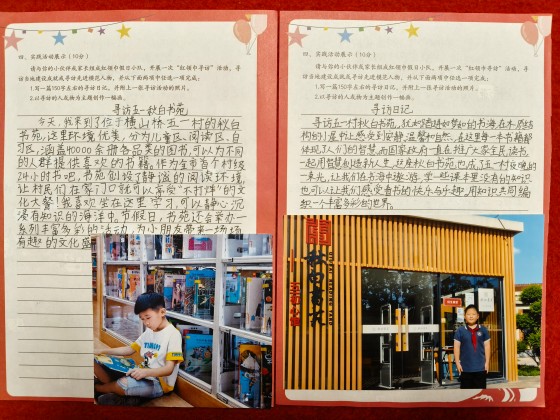 四、实践活动展示(10分)
请与你的小伙伴或家长组成红领巾假日小队，开展一次“红领巾寻访”活动，寻
访当地建设成就或寻访先进模范人物，并从下面两项中任选一项完成:
1.写一篇150字左右的寻访日记，并附上一张寻访活动的照片。
2.以寻访的人或物为主题创作一幅画。
寻访五一秋白书苑
今天,我来到了位于横山桥五一村的秋白
书苑,这里环境优美,分为儿童区、阅读区、自
习区,涵盖40000余册各品类的图书,可以为不同
的人群提供喜欢的书籍。作为全市首个村级
24小时书吧,书苑创设了静谧的阅读环境
让村民们在家门口就可以享受“不打烊”的文
化大餐!我喜欢坐在这里学习,可以静心沉
浸有知识的海洋中。节假日,书苑还会举办一
系列丰富多彩的活动,为小朋友带来一场场
有趣的文化
四、实践活动展示(10分)
请与你的小伙伴或家长组成红领巾假日小队，开展一次“红领巾寻访”活动，寻
访当地建设成就或寻访先进模范人物，并从下面两项中任选一项完成:
1.写一篇150字左右的寻访日记，并附上一张寻访活动的照片。
2.以寻访的人或物为主题创作一幅画。
寻访日记
寻访五一村秋白书苑,犹如踏进如梦如的书海,在木质结
构的小屋中让感受到安静,温馨和自然,在这里每一本书籍都
体现了人们的智慧,而国家政府一直在推广大家全民读书
一起用智慧创结新人生,这座秋白书苑也成了五一村夜晚的
一束光,让我们在书海中遨游,学一些课本里没有的知识
也可以让我们感受看书的快乐与乐趣,用知识共同编
织一个丰富多彩的世界。
秋白书苑